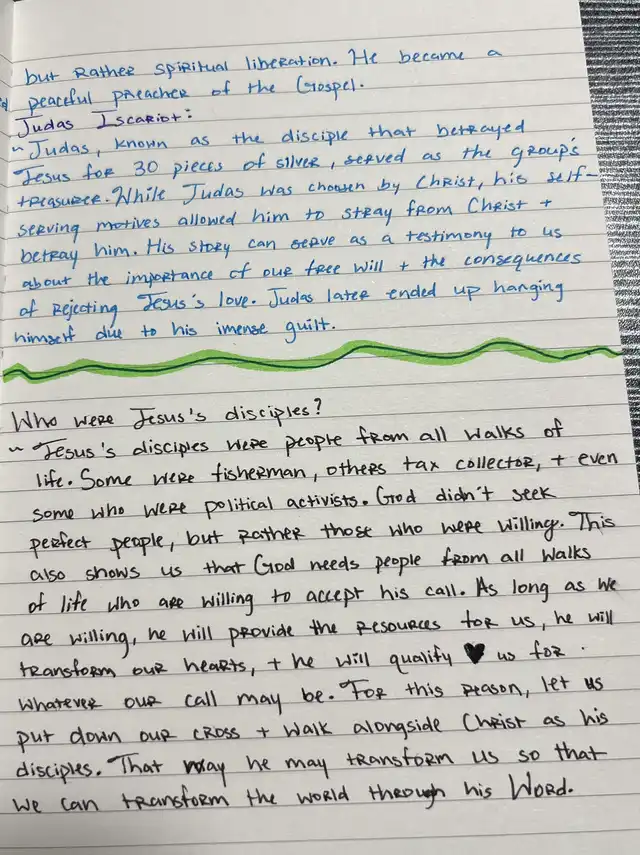 but Rather spiritual liberation. He became a
peaceful preacher of the Gospel.
Judas Iscariot:
~ Judas, known as the disciple that betrayed
Jesus for 30 pieces of silver, served as the group's
treasurer. While Judas was choosen by Christ, his self-
serving motives allowed him to stray from Christ +
betray him. His story can serve as a testimony to us
about the importance of our free will + the consequences
of rejecting Jesus's love. Judas later ended up hanging
himself due to his imense guilt.
Who were Jesus's disciples?
~ Jesus's disciples were people from all walks of
life. Some were fisherman, others tax collector, + even
some who were political activists. God didn't seek
perfect people, but rather those who were willing. This
also shows us that God needs people from all walks
of life who are willing to accept his call. As long as we
are willing, he will provide the resources for us, he will
transform our hearts, + he will qualify ♥ us for
whatever our call may be. For this reason, let us
put down our cross + walk alongside Christ as his
disciples. That way he may transform us so that
we can transform the world through his Word.